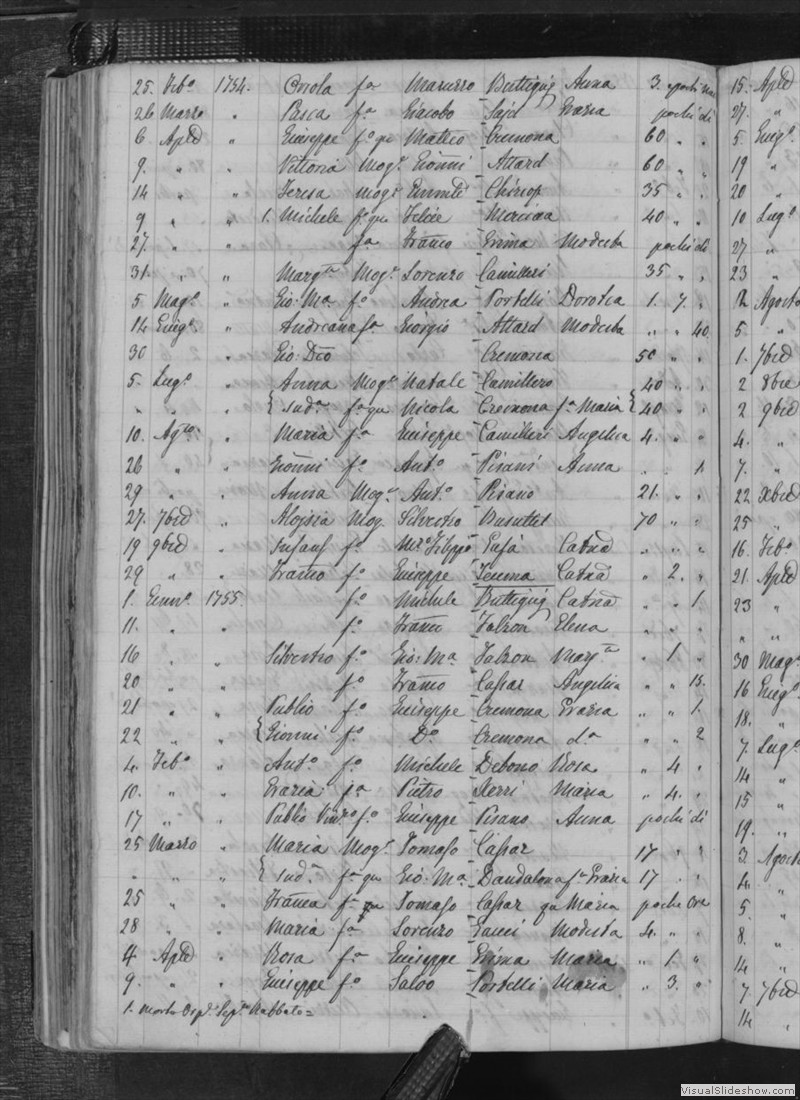 25. Feb° 1754. f.a Buttigieg Anna 3.
26 Marzo " f.a Giacobo Said Grazia pochi di
6. Aple " Giuseppe f.o qu Matteo Cremona 60 " "
9. " " Vittoria Mog.e Gionni Attard 60 " "
14 " " Teresa Mog.e Chircop 35 " "
9 " " 1. Michele f.o qu Felice 40 " "
27. " " f.a Franco Modesta pochi di
31. " " Marg.ta Mog.e Lorenzo Camilleri 35 " "
5 Mag.o " Gio: Ma f.o Andrea Portelli Dorotea 1. 7. "
14 Giug.o " Andreana f.a Giorgio Attard Modesta " " 40
30 " Gio: Dco Cremona 50 " "
5. Lug.o " Anna Mog.e Natale Camilleri 40 " "
" " " { Sud.a f.a qu Nicola Cremona f.a Maria { 40 " "
10. Ag.to " Maria f.a Giuseppe Camilleri Angelica 4. " "
26 " " Gionni f.o Ant.o Pisani Anna " " 1.
29 " " Anna Mog.e Ant.o Pisano 21. " "
27. 7bre " Aloisia Mog. Silvestro Busuttil 70 " "
19 9bre " Infans f.o M.ro Filippo Catna " " "
29 " " Franco f.o Giuseppe Catna " 2. "
1. Genn.o 1755 f.o Michele Buttigieg Catna " " 1
11. " " f.o Franco Falzon Elena " " "
16 " " Silvestro f.o Gio: Ma Falzon Marg.ta " 1 "
20 " " f.o Franco Caspar Angelica " " 15.
21 " " Publio f.o Giuseppe Cremona Grazia " " 1.
22 " " { Gionni f.o D.o Cremona d.a " " 2
4. Feb.o " Ant.o f.o Michele Debono Rosa " 4 "
10. " " Grazia f.a Pietro Maria " 4. "
17 " " Publio Vin.zo f.o Giuseppe Pisano Anna pochi di
25 Marzo " Maria Mog.e Tomaso Caspar 17 " "
" " " { Sud.a f.a qu Gio: Ma Dandalona f.a Grazia 17 " "
25 " " Franca f.a qu Tomaso Caspar qu Maria poche ore
28 " " Maria f.a Lorenzo Modesta 4. " "
4 Aple " Rosa f.a Giuseppe Maria " 1. "
9. " " Giuseppe f.o Salvo Portelli Maria " 3. "
1. Morto Osp.le Rabbato =
15. Aple
27. "
5 Giug.o
19 "
20 "
10 Lug.o
27 "
23 "
2 Agosto
5 "
1. 7bre
2 8bre
2 9bre
4. "
7. "
22 Xbre
25 "
16. Feb.o
21. Aple
23 "
" "
30 Mag.o
16 Giug.o
18. "
7. Lug.o
14 "
15 "
19. "
3. Agosto
4. "
5 "
8. "
14 "
7. 7bre
14 "
VisualSlideshow.com